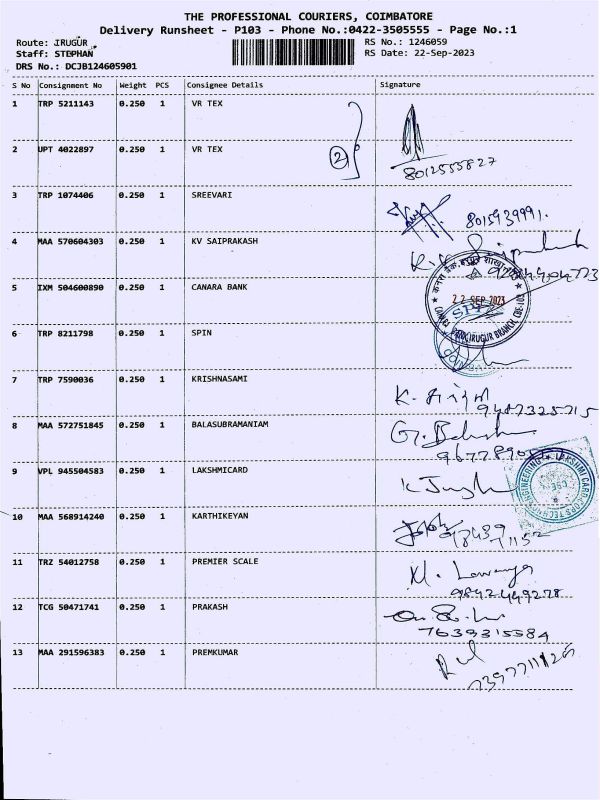 THE PROFESSIONAL COURIERS, COIMBATORE
Delivery Runsheet - P103 - Phone No.:0422-3505555 - Page No.:1
Route: IRUGUR RS No.: 1246059
Staff: STEPHAN RS Date: 22-Sep-2023
DRS No.: DCJB124605901
S No Consignment No Weight PCS Consignee Details Signature
1 TRP 5211143 0.250 1 VR TEX
2 UPT 4022897 0.250 1 VR TEX 2 8012555827
3 TRP 1074406 0.250 1 SREEVARI 8015939991.
4 MAA 570604303 0.250 1 KV SAIPRAKASH
5 IXM 504600890 0.250 1 CANARA BANK
22 SEP 2023
6 TRP 8211798 0.250 1 SPIN
7 TRP 7590036 0.250 1 KRISHNASAMI
9487325715
8 MAA 572751845 0.250 1 BALASUBRAMANIAM
9 VPL 945504583 0.250 1 LAKSHMICARD
10 MAA 568914240 0.250 1 KARTHIKEYAN
11 TRZ 54012758 0.250 1 PREMIER SCALE
M. Lavanya
9842449278
12 TCG 50471741 0.250 1 PRAKASH
7639315584
13 MAA 291596383 0.250 1 PREMKUMAR